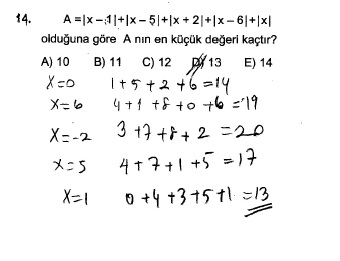 14. A =|x – 1|+|x – 5|+|x + 2|+|x – 6|+|x|
olduğuna göre A nın en küçük değeri kaçtır?
A) 10 B) 11 C) 12 D) 13 E) 14
x=0 1+5+2+6=14
x=6 4+1+8+0+6=19
x=-2 3+7+8+2=20
x=5 4+7+1+5=17
x=1 0+4+3+5+1=13